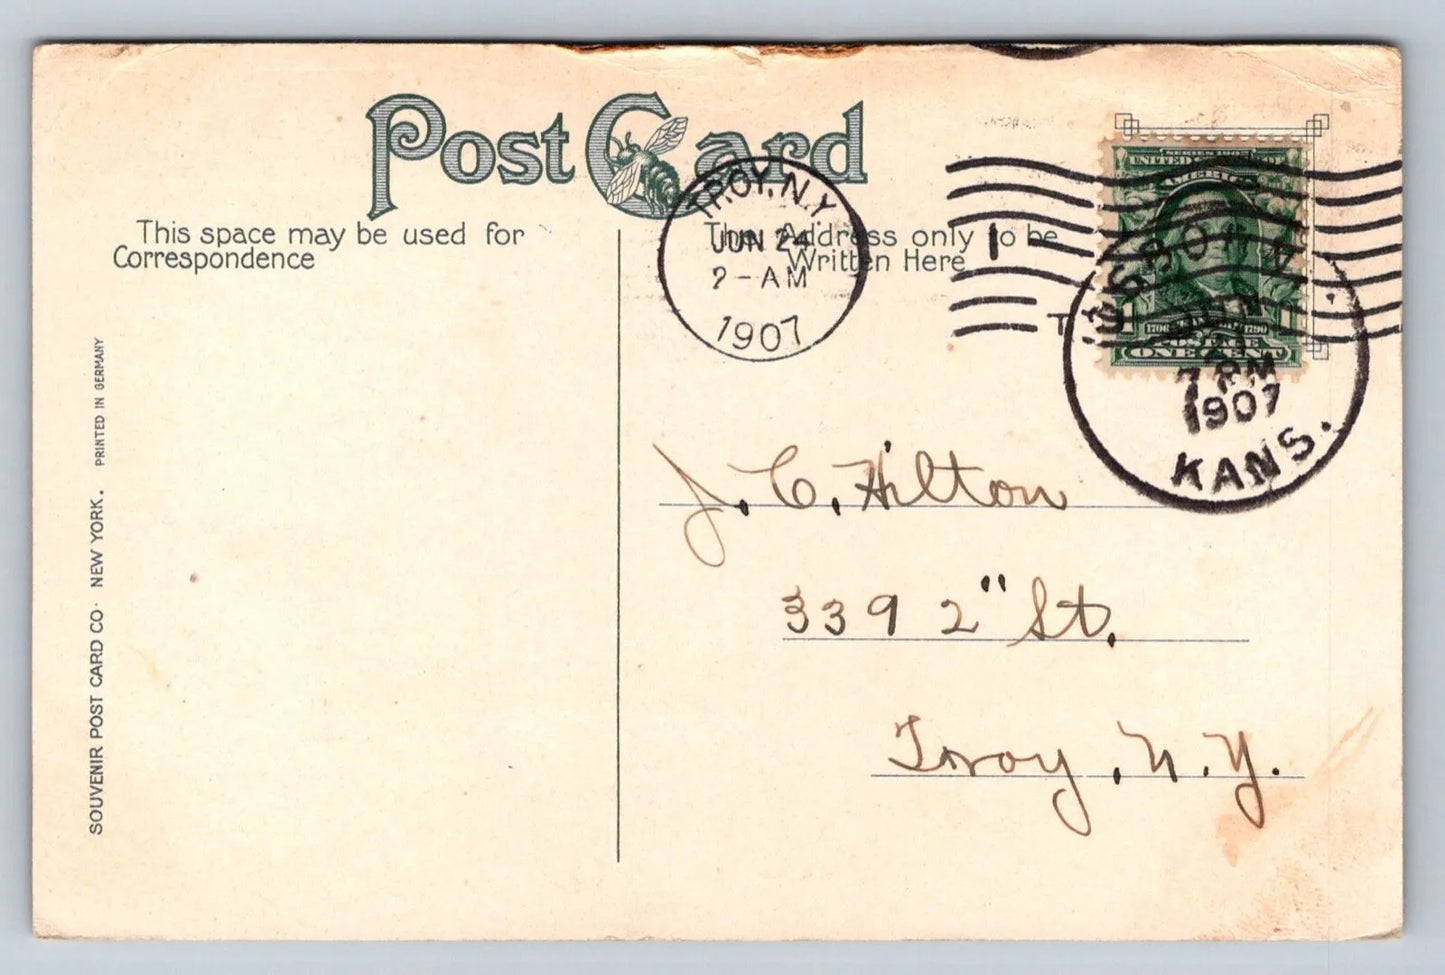 Post Card
This space may be used for
Correspondence
This Address only to be
Written Here
TROY, N.Y.
JUN 24
2-AM
1907
1
T
UNITED STATES OF
AMERICA
1 1
POSTAGE
ONE CENT
OSBORN
7 PM
1907
KANS.
J. C. Hilton
339 2" St.
Troy, N.Y.
SOUVENIR POST CARD CO. NEW YORK. PRINTED IN GERMANY